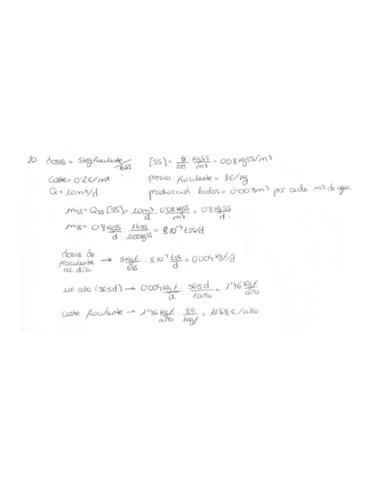 20. dosis = 5 kg floculante/tSS [SS] = 8/100 kgSS/m³ = 0'08 kgSS/m³
coste = 0'2 €/m³ precio floculante = 8€/kg
Q = 10m³/d producción lodos = 0'003m³ por cada m³ de agua
mss = Qss [SS] = 10m³/d · 0'08 kgSS/m³ = 0'8 kgSS/d
mss = 0'8 kgSS/d · 1tSS/1000kgSS = 8·10⁻⁴ tSS/d
dosis de floculante al día → 5kgf/tSS · 8·10⁻⁴ tSS/d = 0'004 kgf/d
un año (365d) → 0'004 kgf/d · 365d/1año = 1'46 kgf/año
coste floculante → 1'46 kgf/año · 8€/1kgf = 11'68 €/año